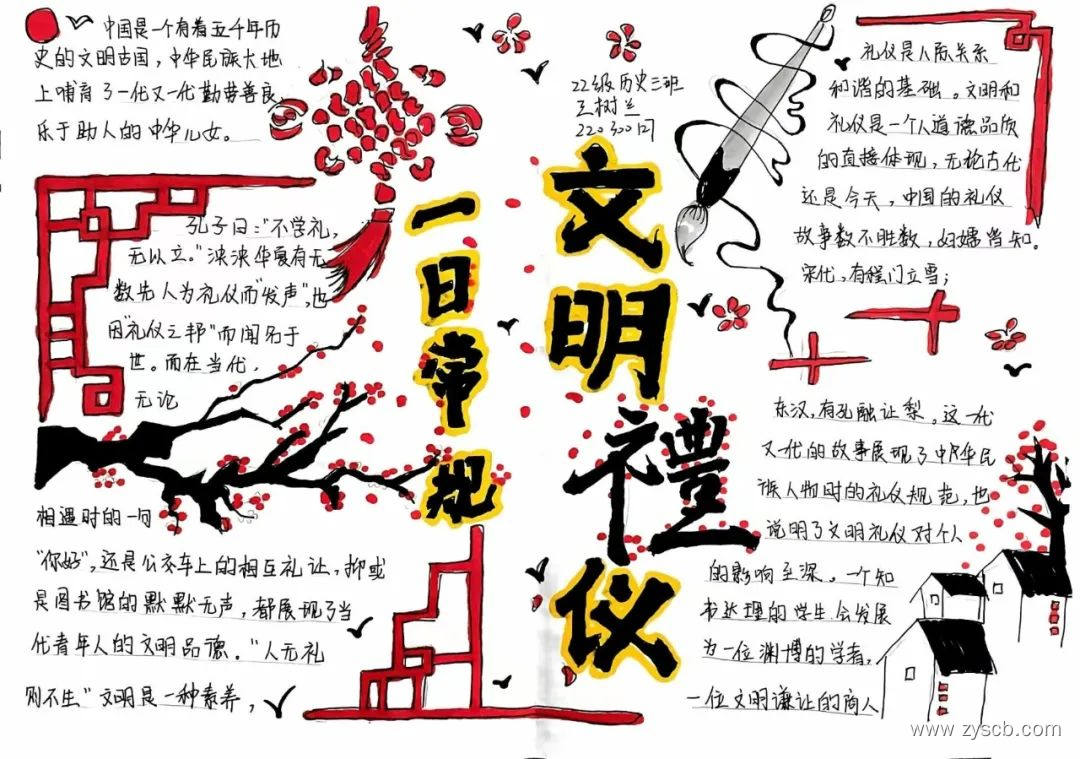 中国是一个有着五千年历
史的文明古国，中华民族大地
上哺育了一代又一代勤劳善良、
乐于助人的中华儿女。
孔子曰:"不学礼，
无以立。"泱泱华夏有无
数先人为礼仪而"发声"，也
因"礼仪之邦"而闻名于
世。而在当代，
无论
相遇时的一句
"你好"，还是公交车上的相互礼让，抑或
是图书馆的默默无声，都展现了当
代青年人的文明品德。"人无礼
则不生"文明是一种素养，
一日常规
文明禮仪
22级历史三班
王树兰
礼仪是人际关系
和谐的基础。文明和
礼仪是一个人道德品质
的直接体现，无论古代
还是今天，中国的礼仪
故事数不胜数，妇孺当知。
宋代，有程门立雪；
东汉，有孔融让梨。这一代
又一代的故事展现了中华民
族人物时的礼仪规范，也
说明了文明礼仪对个人
的影响至深。一个知
书达理的学生会发展
为一位渊博的学者，
一位文明谦让的商人
www.zyscb.com